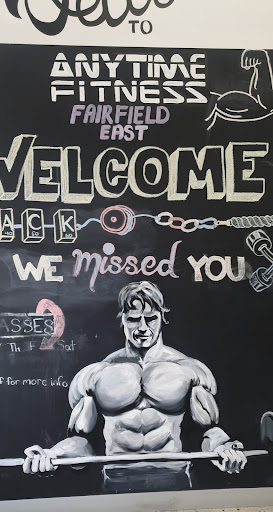 TO
ANYTIME
FITNESS
FAIRFIELD
EAST
WELCOME
ACK
WE missed YOU
ASSES
Th Sat
for more info